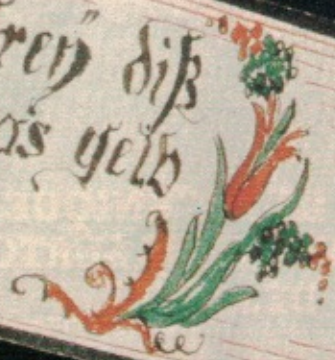 reÿ diß
as gelb